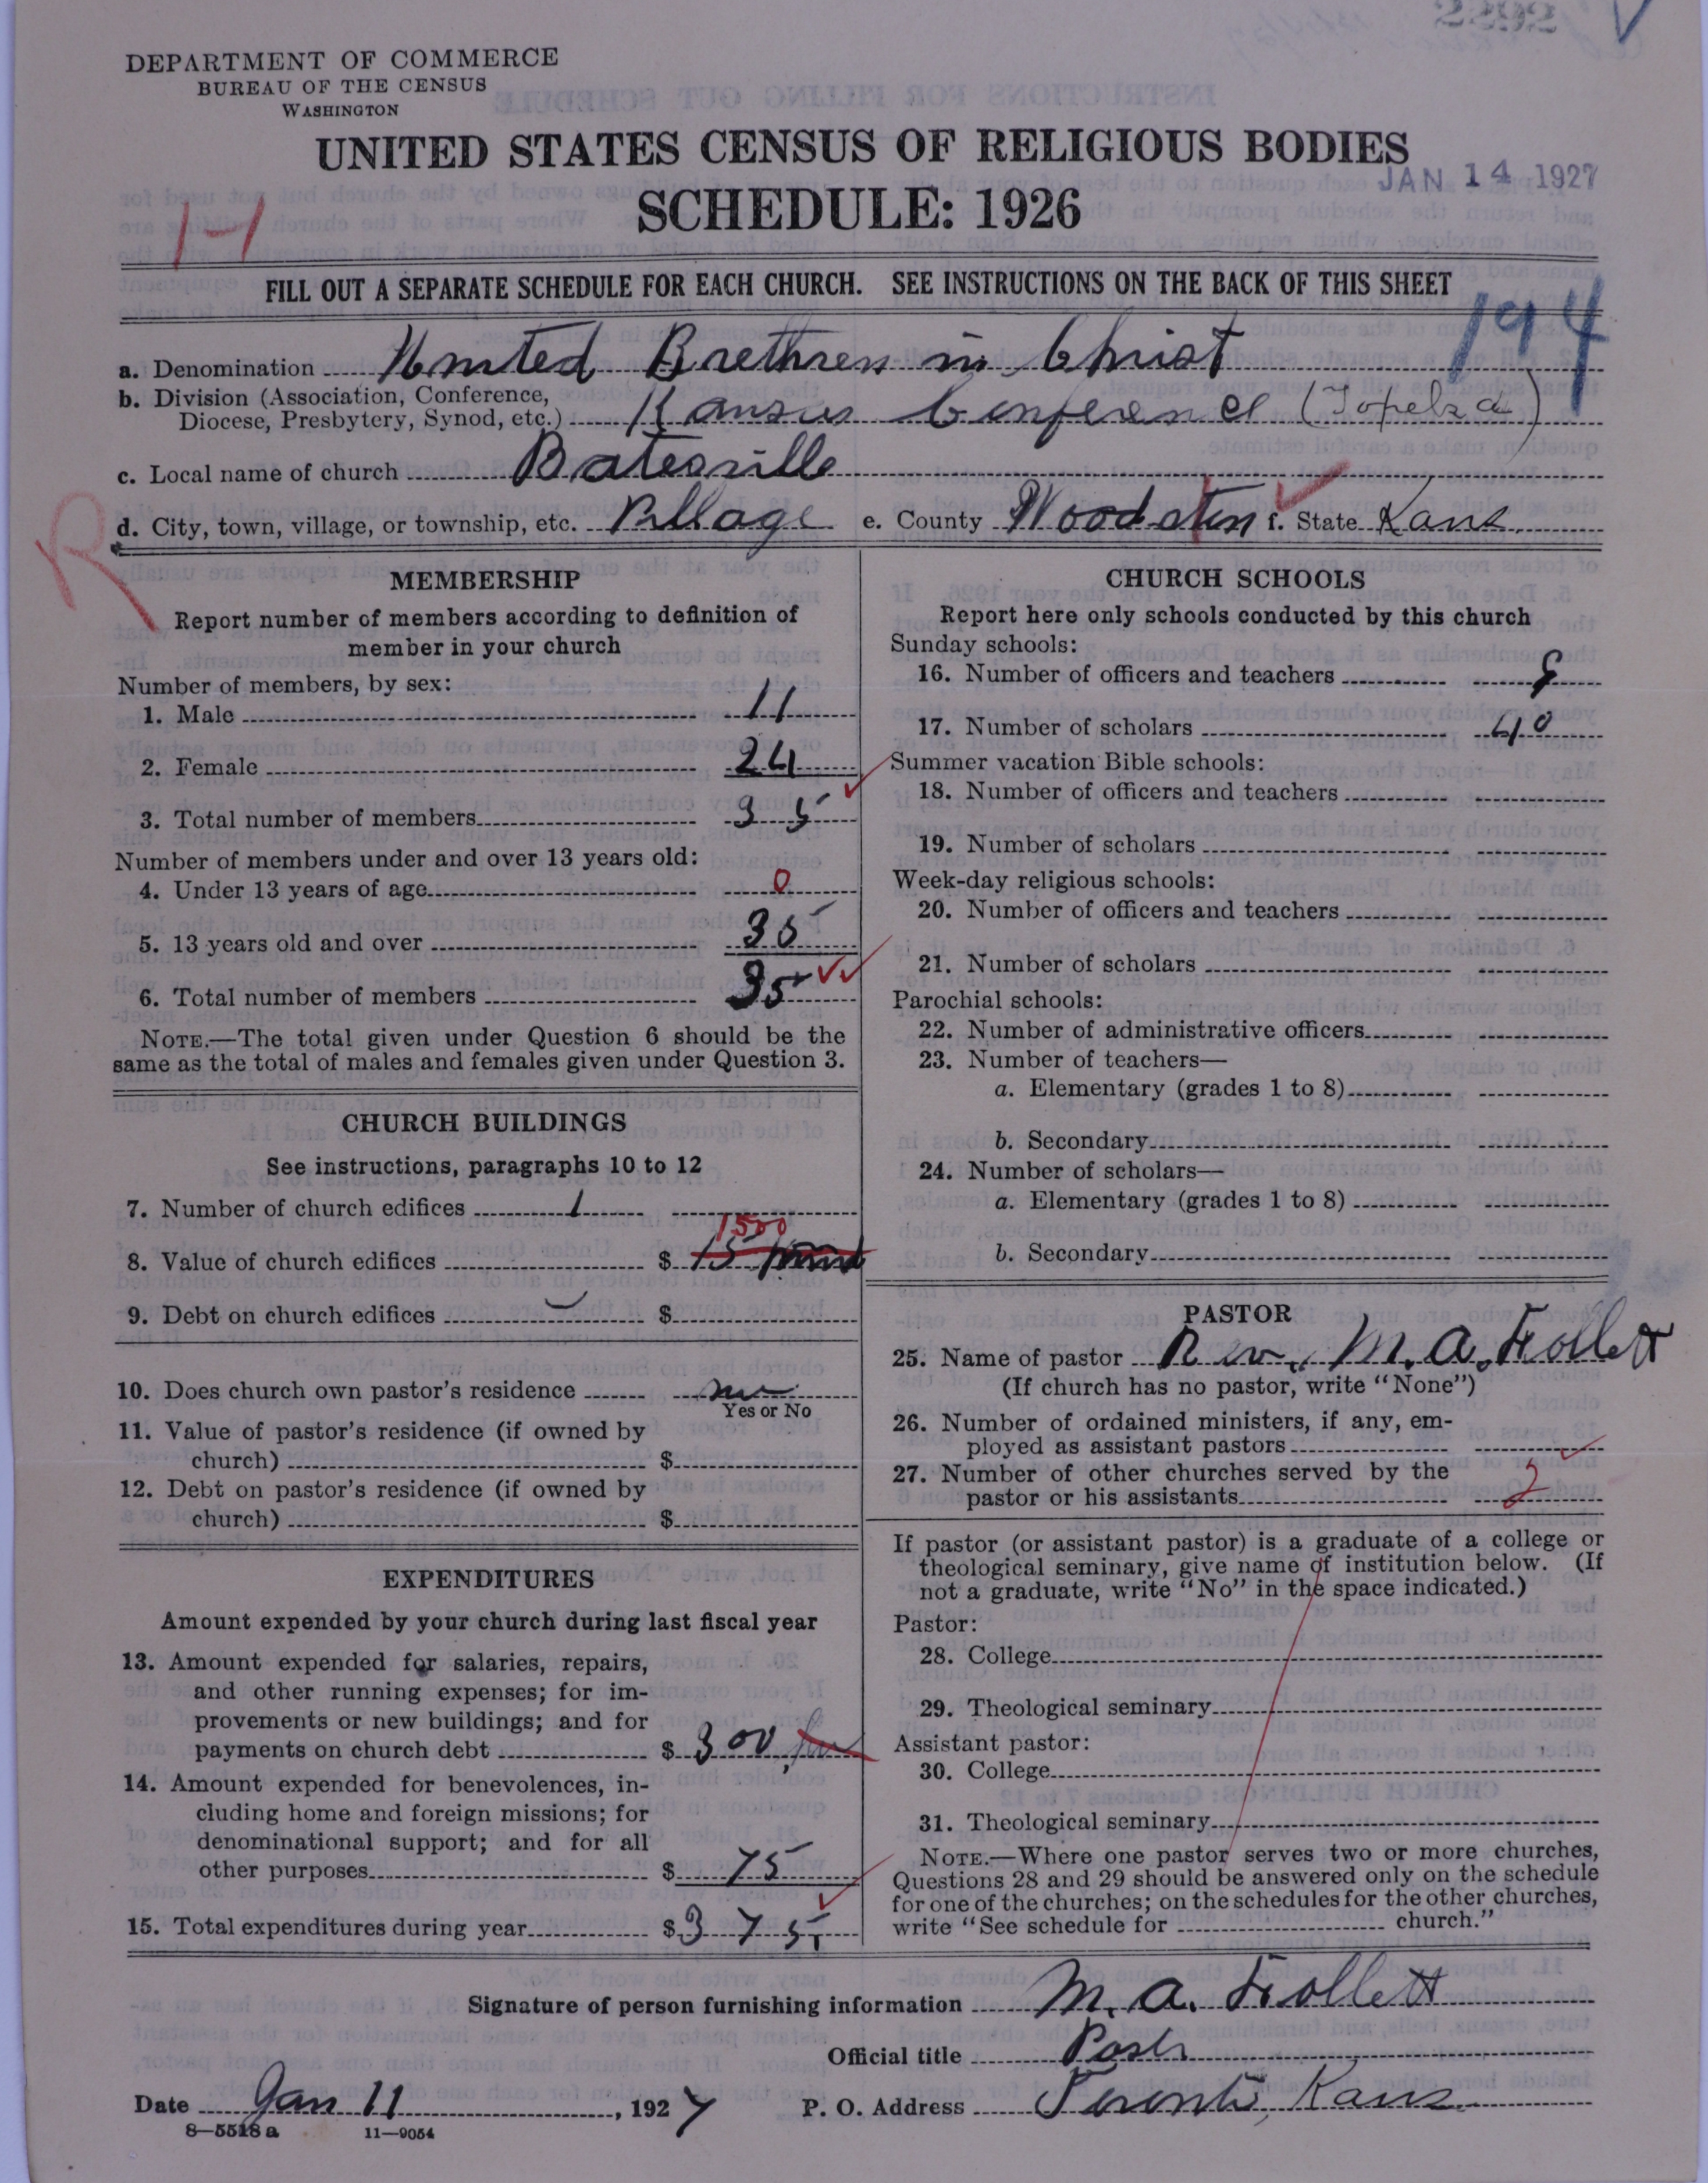 DEPARTMENT OF COMMERCE
BUREAU OF THE CENSUS
WASHINGTON
UNITED STATES CENSUS OF RELIGIOUS BODIES
JAN 14 1927
SCHEDULE: 1926
FILL OUT A SEPARATE SCHEDULE FOR EACH CHURCH. SEE INSTRUCTIONS ON THE BACK OF THIS SHEET
194
a. Denomination United Brethren in Christ
b. Division (Association, Conference,
Diocese, Presbytery, Synod, etc.) Kansas Conference (Topeka)
c. Local name of church Batesville
d. City, town, village, or township, etc. Village e. County Woodston f. State Kans
R
MEMBERSHIP
Report number of members according to definition of
member in your church
Number of members, by sex:
1. Male 11
2. Female 24
3. Total number of members 35
Number of members under and over 13 years old:
4. Under 13 years of age 0
5. 13 years old and over 35
6. Total number of members 35
NOTE.—The total given under Question 6 should be the
same as the total of males and females given under Question 3.
CHURCH BUILDINGS
See instructions, paragraphs 10 to 12
7. Number of church edifices 1
1500
8. Value of church edifices $ 15
9. Debt on church edifices $
10. Does church own pastor's residence no
Yes or No
11. Value of pastor's residence (if owned by
church) $
12. Debt on pastor's residence (if owned by
church) $
EXPENDITURES
Amount expended by your church during last fiscal year
13. Amount expended for salaries, repairs,
and other running expenses; for im-
provements or new buildings; and for
payments on church debt $ 300
14. Amount expended for benevolences, in-
cluding home and foreign missions; for
denominational support; and for all
other purposes $ 75
15. Total expenditures during year $ 375
CHURCH SCHOOLS
Report here only schools conducted by this church
Sunday schools:
16. Number of officers and teachers
17. Number of scholars 40
Summer vacation Bible schools:
18. Number of officers and teachers
19. Number of scholars
Week-day religious schools:
20. Number of officers and teachers
21. Number of scholars
Parochial schools:
22. Number of administrative officers
23. Number of teachers—
a. Elementary (grades 1 to 8)
b. Secondary
24. Number of scholars—
a. Elementary (grades 1 to 8)
b. Secondary
PASTOR
25. Name of pastor Rev. M. A. Follett
(If church has no pastor, write "None")
26. Number of ordained ministers, if any, em-
ployed as assistant pastors
27. Number of other churches served by the
pastor or his assistants 2
If pastor (or assistant pastor) is a graduate of a college or
theological seminary, give name of institution below. (If
not a graduate, write "No" in the space indicated.)
Pastor:
28. College
29. Theological seminary
Assistant pastor:
30. College
31. Theological seminary
NOTE.—Where one pastor serves two or more churches,
Questions 28 and 29 should be answered only on the schedule
for one of the churches; on the schedules for the other churches,
write "See schedule for church."
Signature of person furnishing information M. A. Follett
Official title Pastr
Date Jan 11, 1927 P. O. Address Toronto, Kans
8—5518 a 11—9054